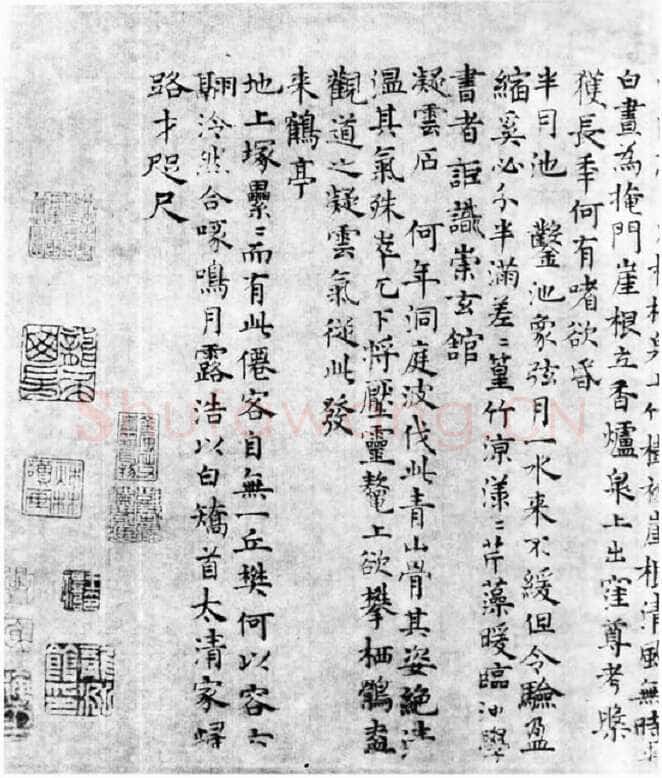 竹樹被崖根清風無時
白晝為掩門崖根立香爐泉上出窪尊考槃
獲長年何有嗜欲昏
半月池　鑿池象弦月一水來不緩但令驗盈
縮奚必分半滿差〻篁竹涼漾〻芹藻暖臨池學
書者詎識崇玄館
凝雲石　何年洞庭波伐此青山骨其姿絕
溫其氣殊崒兀下將壓靈鼇上欲攀栖鶻盍
觀道之凝雲氣從此發
來鶴亭
地上塚纍〻而有此僊客自無一丘樊何以容六
翮泠然合啄鳴月露浩以白矯首太清家歸
路才咫尺
Shufawang.CN